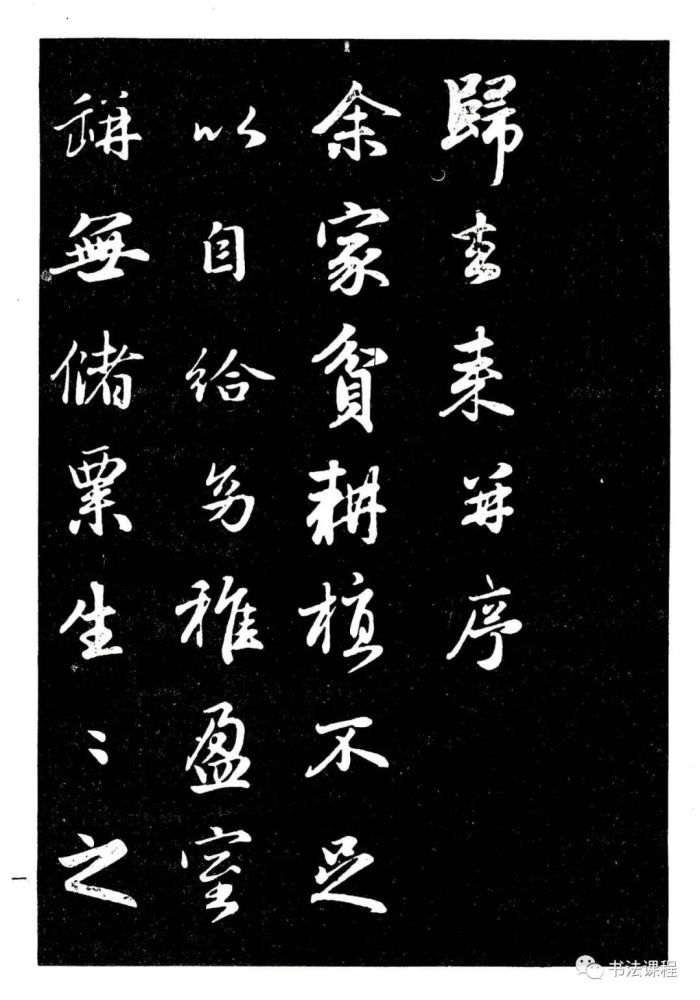 歸去来并序
余家貧耕植不足
以自給幼稚盈室
缾無儲粟生〻之
一
书法课程